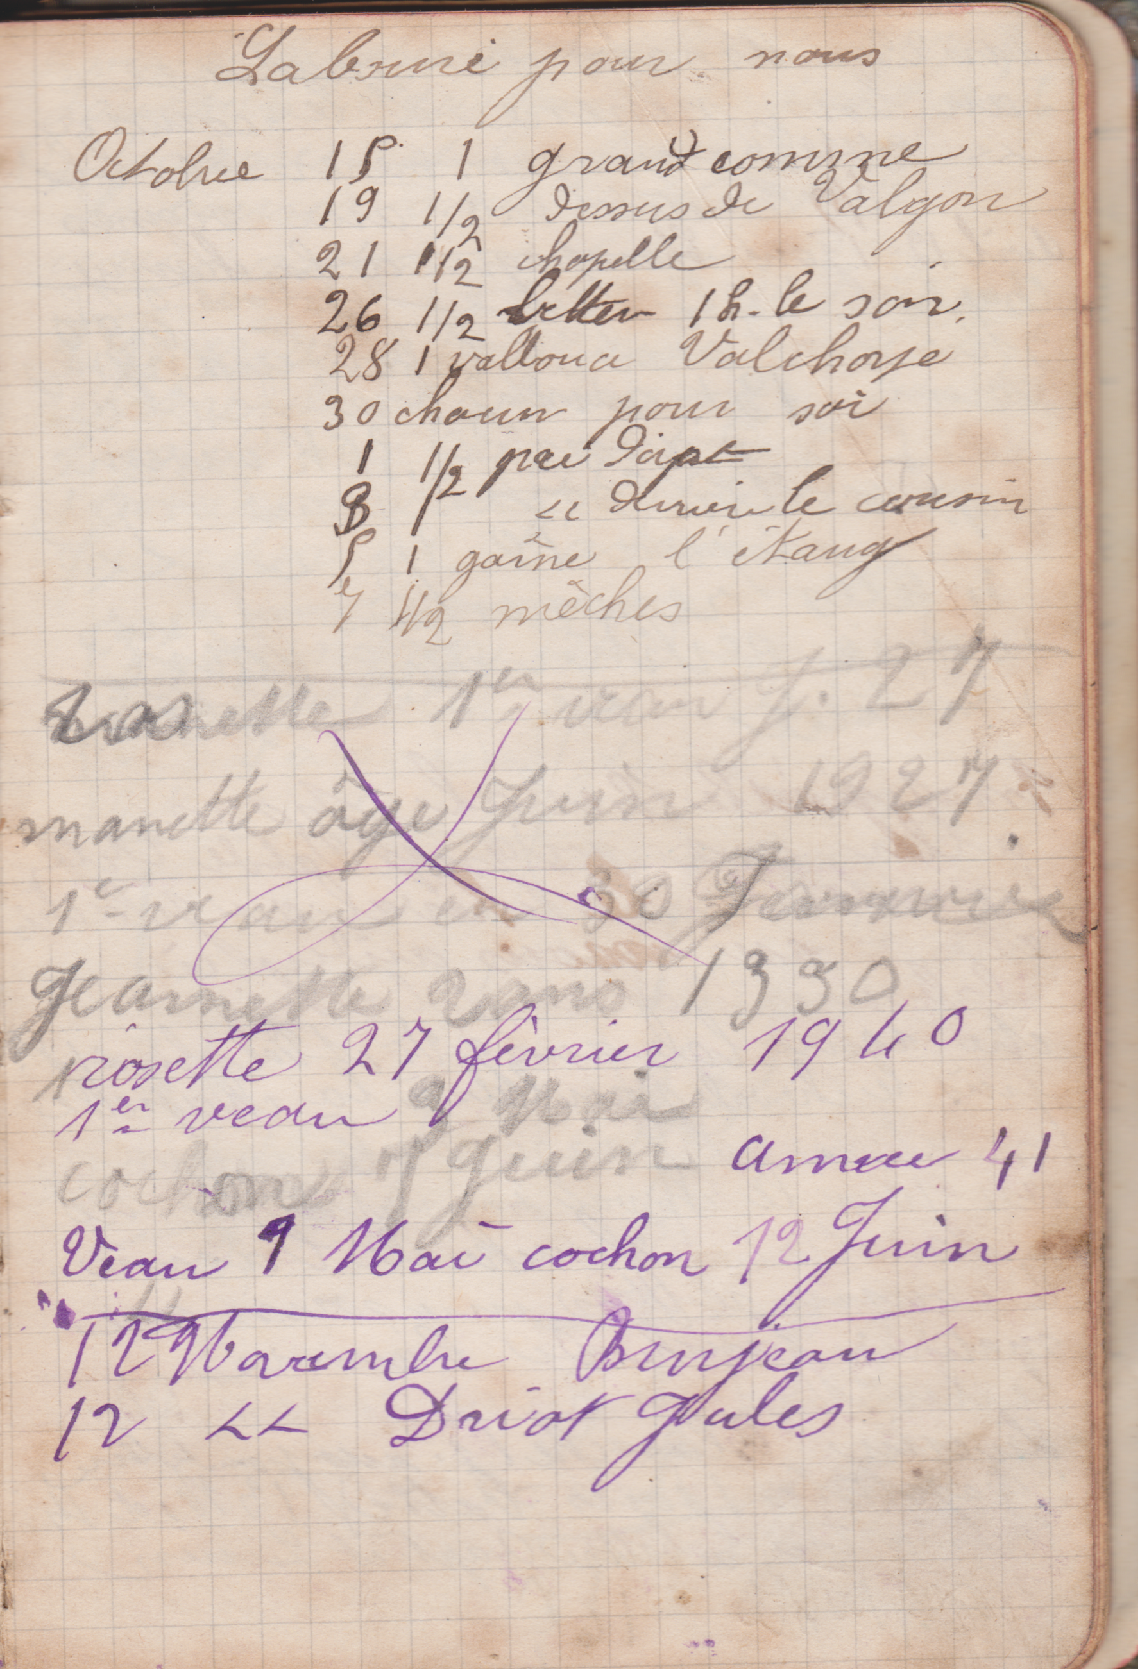 Labouré pour nous
Octobre 15 1 grand comme
19 1/2 dessus de Valgon
21 1/2 chapelle
26 1/2 1 h. le soir.
28 1 Valchoye
30 chacun pour soi
1 1/2
3 1/2 " derrière le cousin
5 1 gaîne l'étang
7 1/2 mèches
1er veau J. 27
manette âge Juin 1927
1e veau 30 Janvier
Jeannette 2 ans 1930
rosette 27 février 1940
1er veau 9 Mai
cochon 17 Juin année 41
Veau 9 Mai cochon 12 Juin
12 Novembre Bonjean
12 << Driot Jules